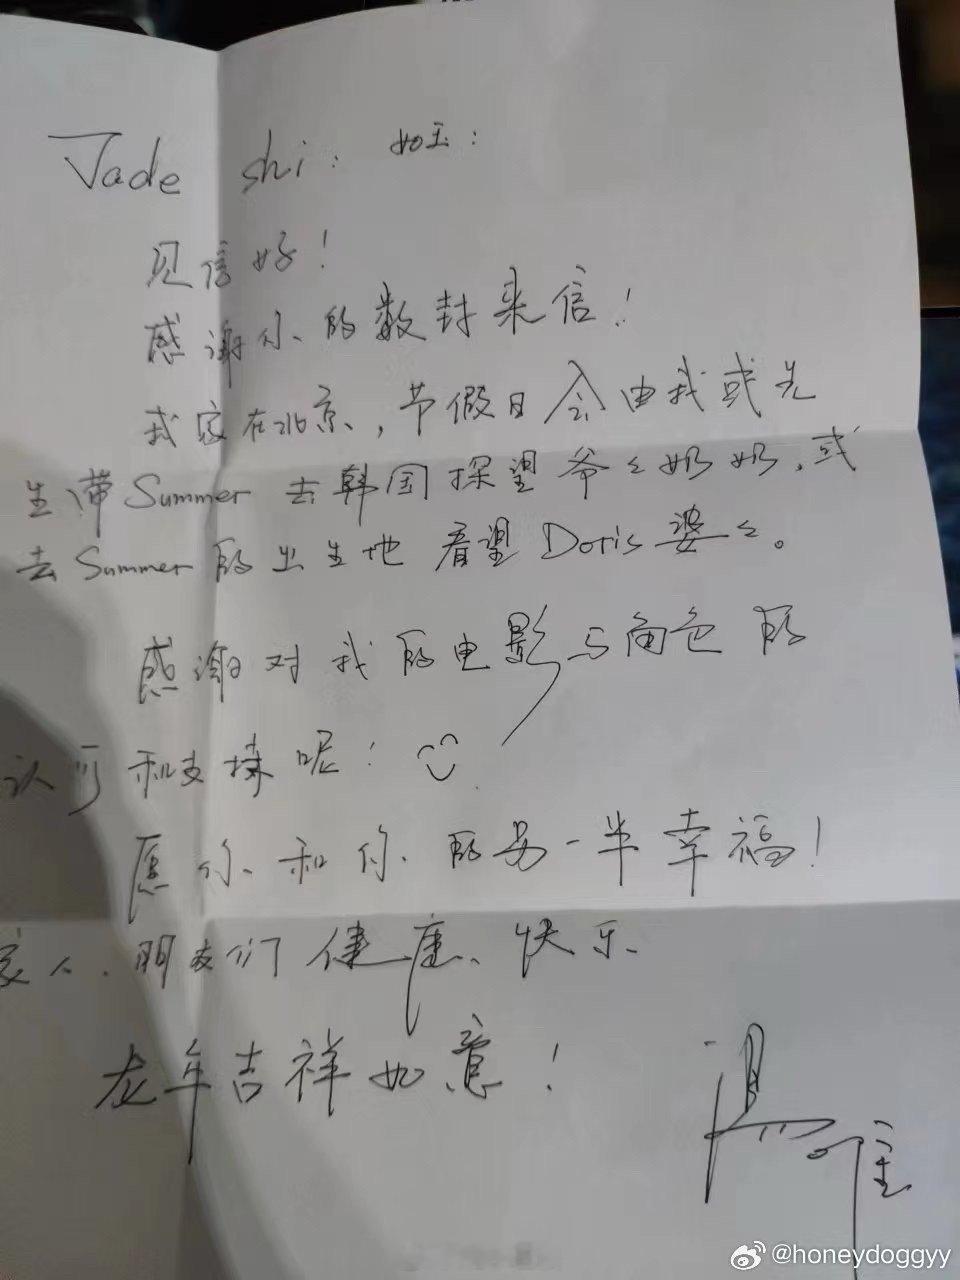 Jade shi: 如玉:
见信好!
感谢你的数封来信!
我家在北京,节假日会由我或先
生带Summer 去韩国探望爷々奶奶,或
去Summer的出生地看望Doris婆々。
感谢对我的电影与角色的
认可和支持呢! ☺
愿你和你的另一半幸福!
家人、朋友们健康、快乐
龙年吉祥如意!
汤唯
@honeydoggyy